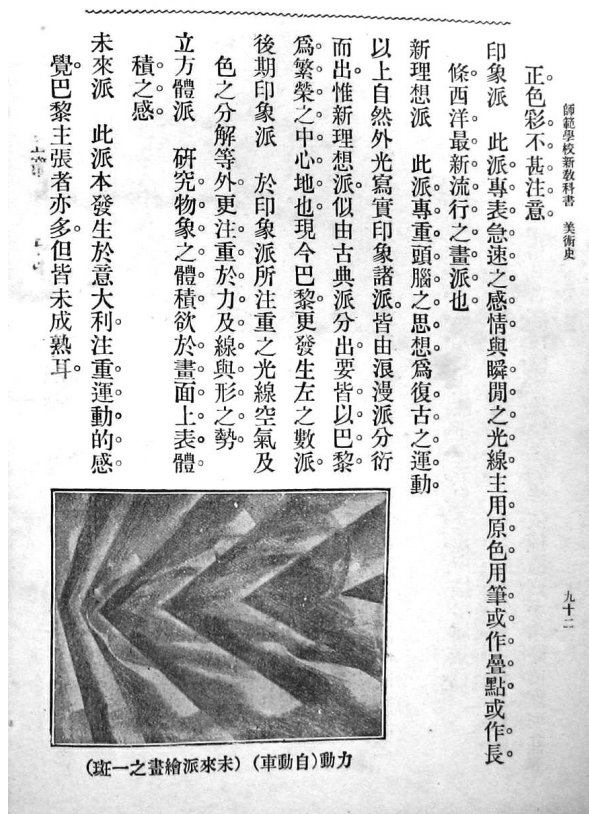 師範學校新敎科書　美術史
九十二
正色彩不甚注意。
印象派　此派專表急速之感情與瞬閒之光線主用原色用筆或作疊點或作長
條西洋最新流行之畫派也
新理想派　此派專重頭腦之思想爲復古之運動。
以上自然外光寫實印象諸派。皆由浪漫派分衍
而出。惟新理想派。似由古典派分出。要皆以巴黎
爲繁榮之中心地也。現今巴黎更發生左之數派。
後期印象派　於印象派所注重之光線空氣及
色之分解等外。更注重於力及線與形之勢
立方體派　硏究物象之體積欲於畫面上表體
積之感。
未來派　此派本發生於意大利。注重運動的感
覺。巴黎主張者亦多。但皆未成熟耳。
力動(自動車)(未來派繪畫之一斑)